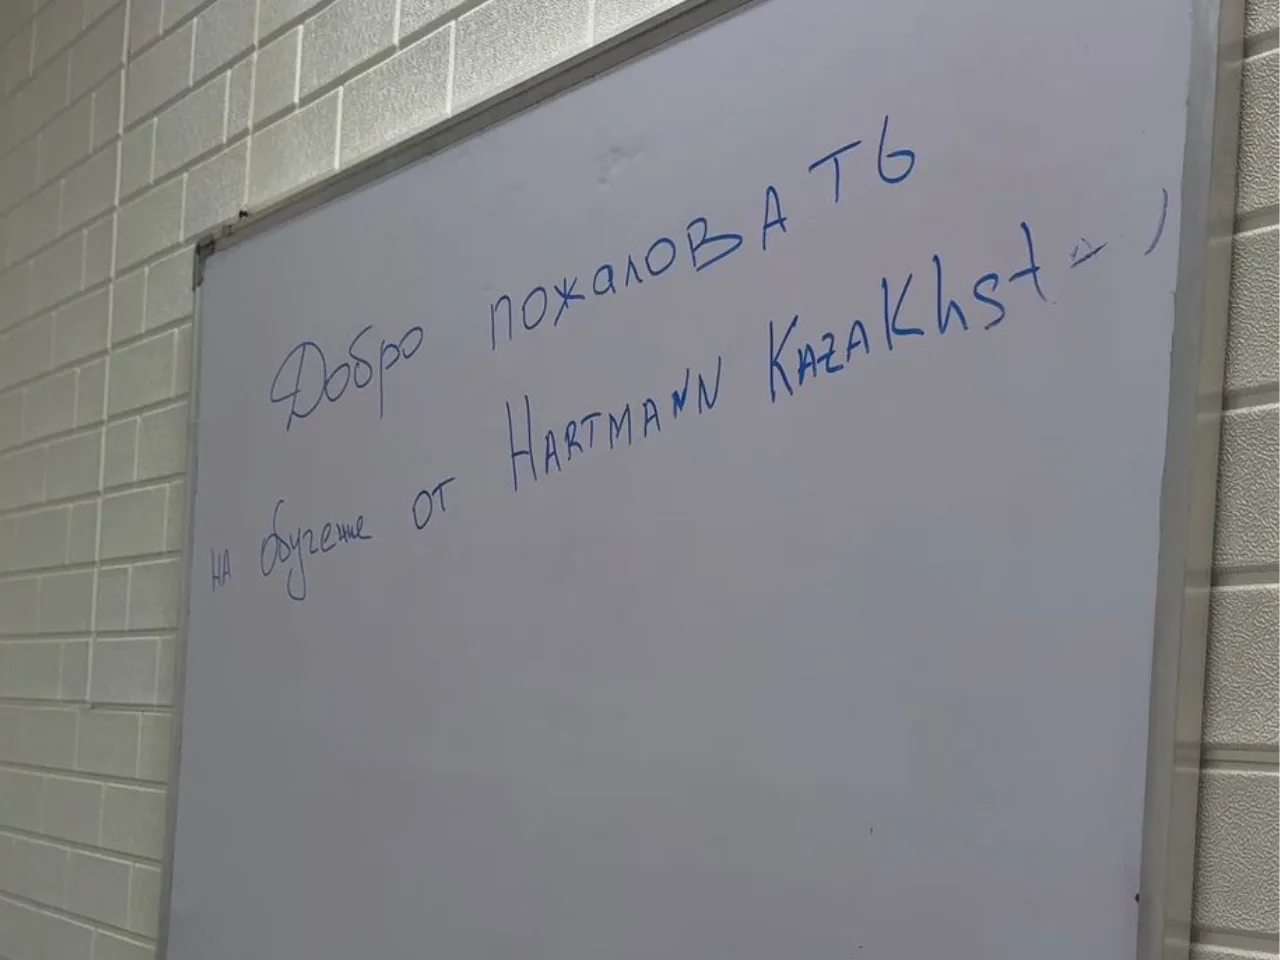 Добро пожаловать
на обучение от Hartmann